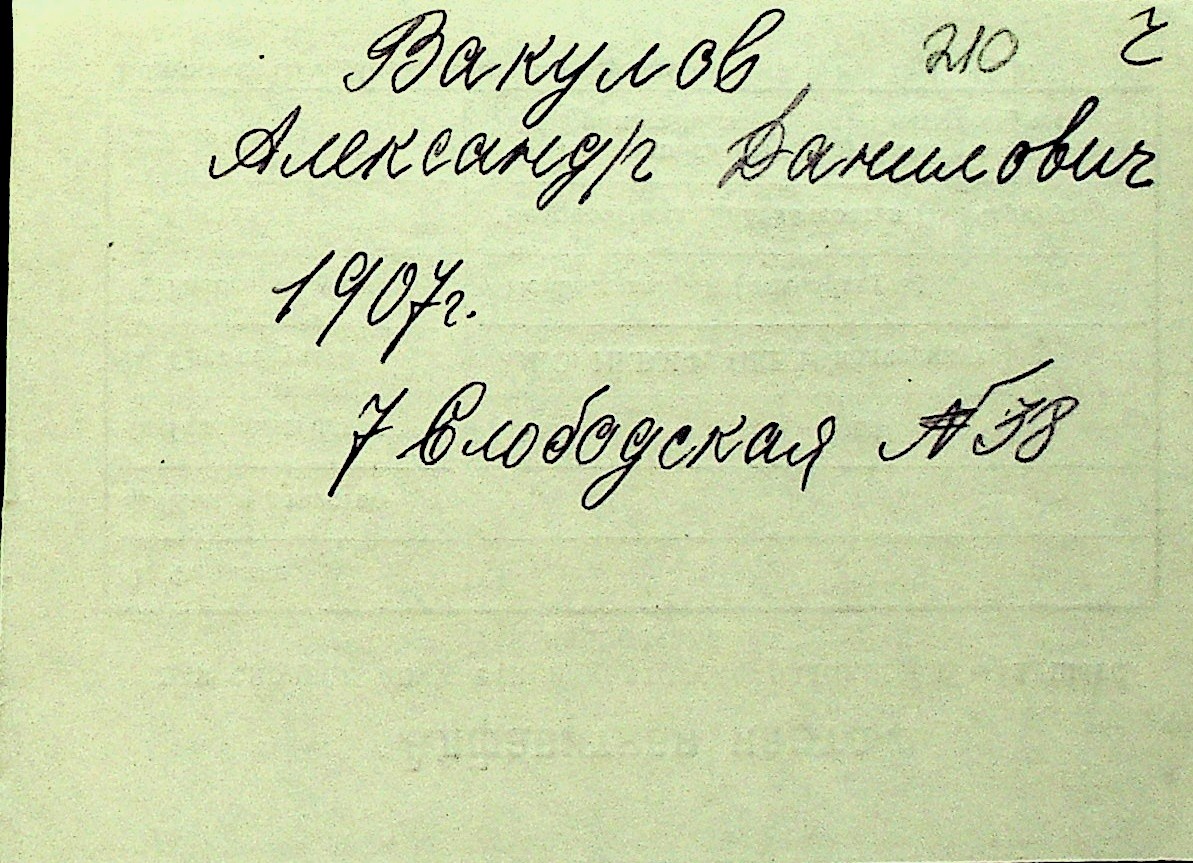 Вакулов 210 г
Александр Данилович
1907г.
7 Слободская № 38